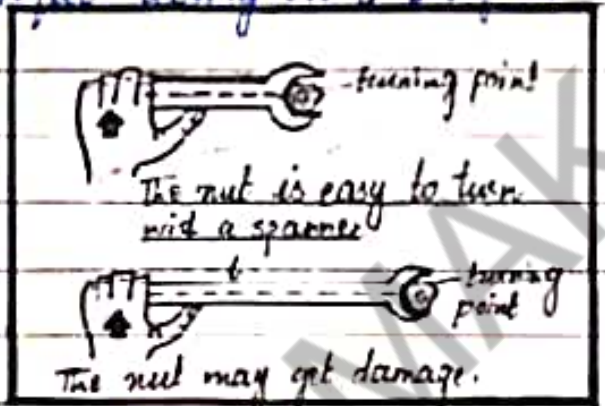 turning point
The nut is easy to turn
wid a spanner
l
turning
point
The nut may get damage.
MAK